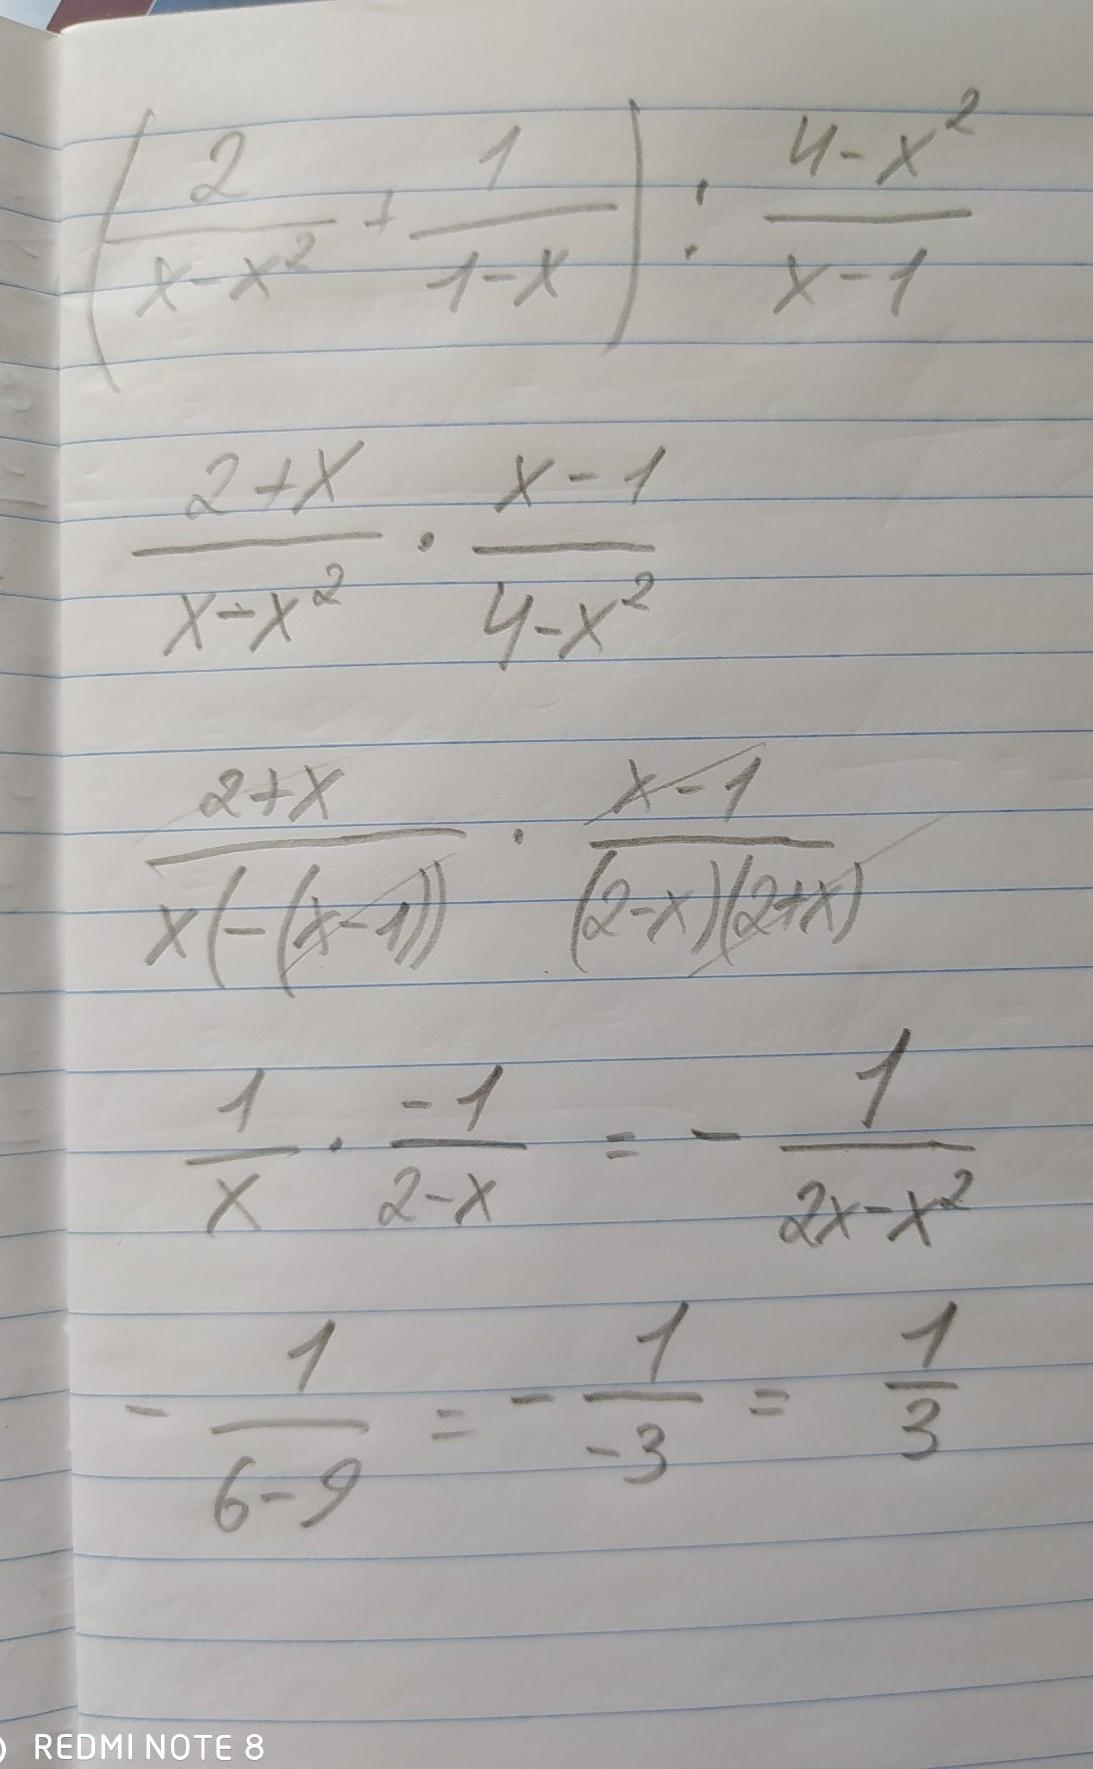 (2/(x-x²) + 1/(1-x)) : (4-x²)/(x-1)
(2+x)/(x-x²) · (x-1)/(4-x²)
(2+x)/(x(-(x-1))) · (x-1)/((2-x)(2+x))
1/x · -1/(2-x) = - 1/(2x-x²)
- 1/(6-9) = - 1/-3 = 1/3
REDMI NOTE 8